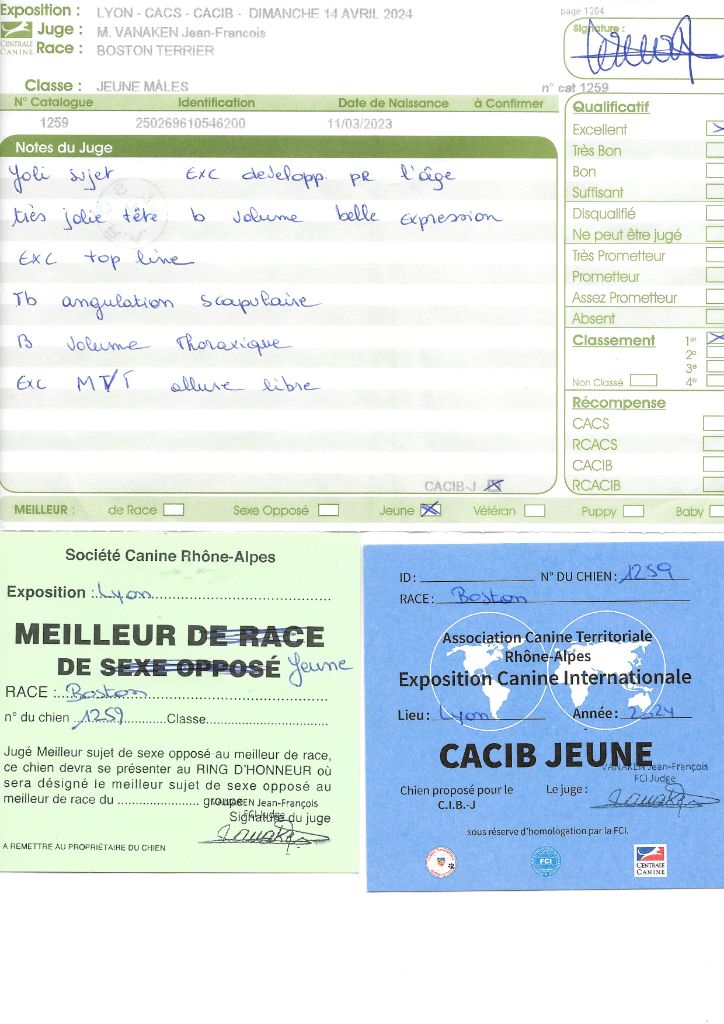 Exposition : LYON - CACS - CACIB - DIMANCHE 14 AVRIL 2024
page 1204
Juge : M. VANAKEN Jean-François
Signature :
CENTRALE CANINE
Race : BOSTON TERRIER
Classe : JEUNE MÂLES
n° cat 1259
N° Catalogue Identification Date de Naissance à Confirmer
1259 250269610546200 11/03/2023
Notes du Juge
Joli sujet Exc developp. pr l'âge
très jolie tête b volume belle expression
Exc top line
Tb angulation scapulaire
B volume Thoraxique
Exc MVT allure libre
CACIB-J
Qualificatif
Excellent
Très Bon
Bon
Suffisant
Disqualifié
Ne peut être jugé
Très Prometteur
Prometteur
Assez Prometteur
Absent
Classement 1er
2e
3e
Non Classé 4e
Récompense
CACS
RCACS
CACIB
RCACIB
MEILLEUR : de Race Sexe Opposé Jeune Vétéran Puppy Baby
Société Canine Rhône-Alpes
Exposition : Lyon
MEILLEUR DE RACE
DE SEXE OPPOSÉ Jeune
RACE : Boston
n° du chien 1259 Classe
Jugé Meilleur sujet de sexe opposé au meilleur de race,
ce chien devra se présenter au RING D'HONNEUR où
sera désigné le meilleur sujet de sexe opposé au
meilleur de race du ..................... groupe
VANAKEN Jean-François
FCI Judge
Signature du juge
A REMETTRE AU PROPRIÉTAIRE DU CHIEN
ID : N° DU CHIEN : 1259
RACE : Boston
Association Canine Territoriale
Rhône-Alpes
Exposition Canine Internationale
Lieu : Lyon Année : 2024
CACIB JEUNE
VANAKEN Jean-François
FCI Judge
Chien proposé pour le Le juge :
C.I.B.-J
sous réserve d'homologation par la FCI.
FCI
CENTRALE CANINE